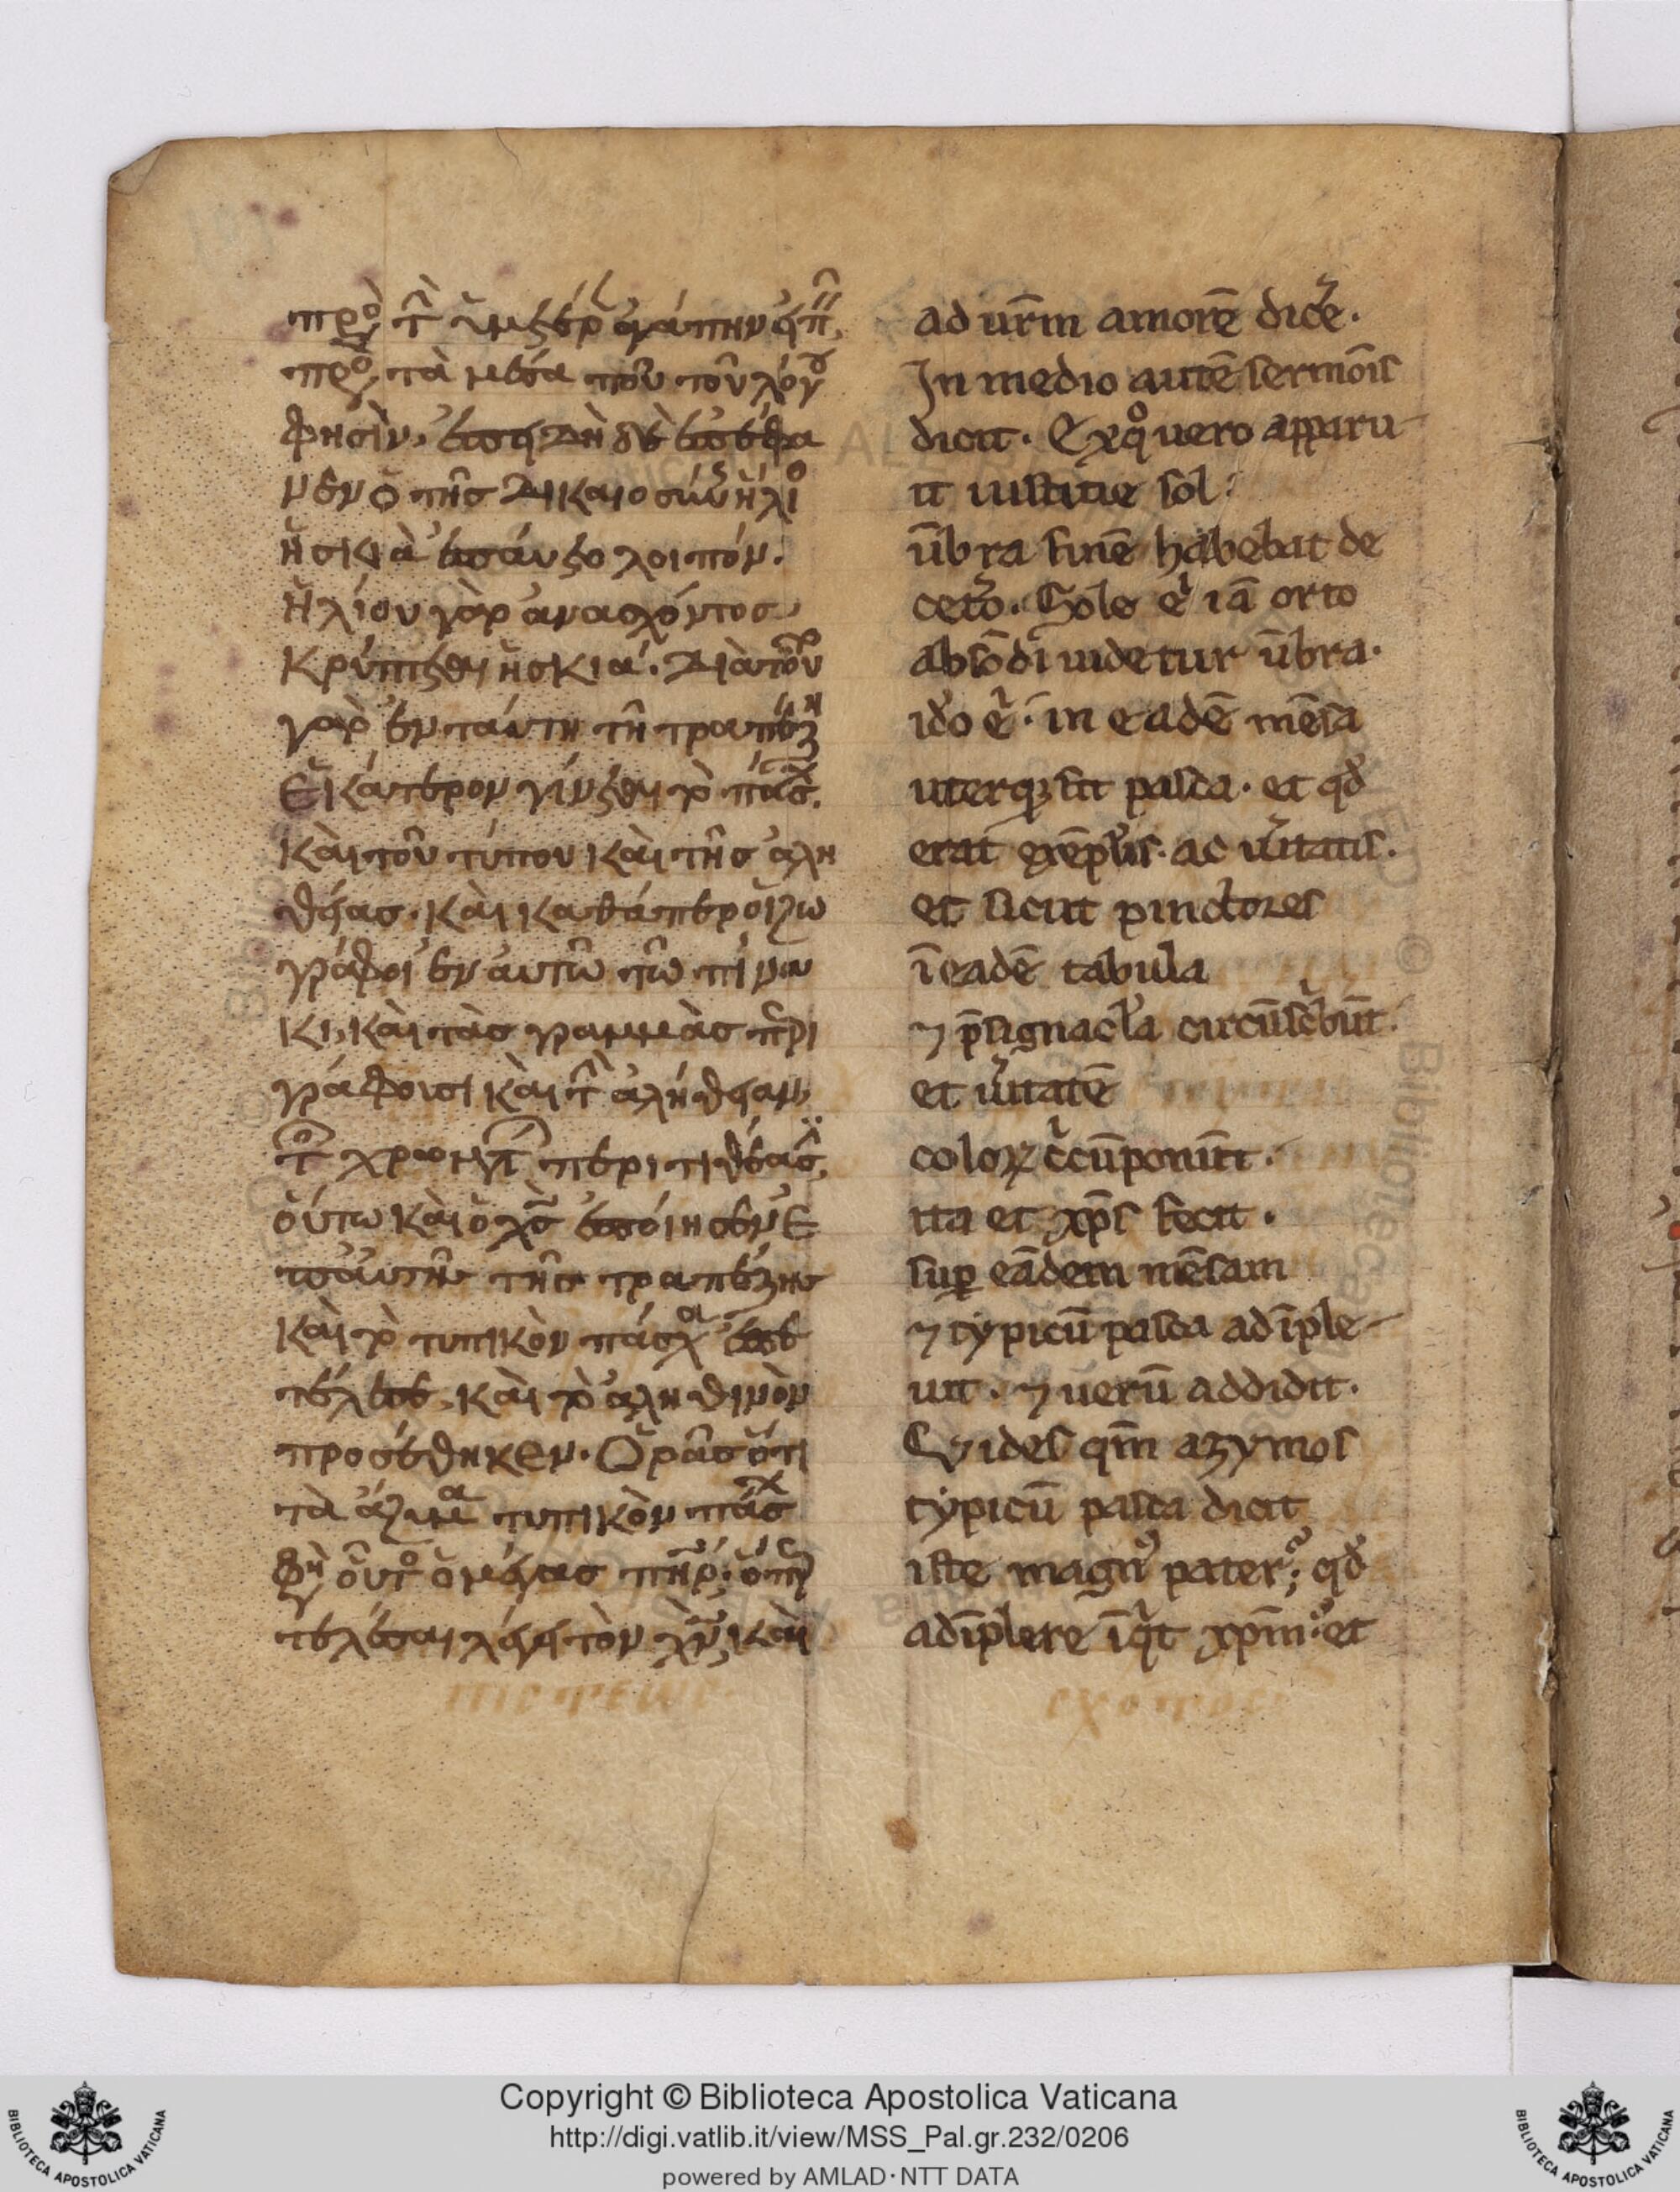 πρὸς τ̑ ὑμετέρ ἀγάπην εἰπ̑.
πρὸς τὰ μέσα τοῦ τοῦ λόγου
φησὶν, ἐπειδὴ δὲ ἐπέφα
νεν ὁ τῆς δικαιοσύν ἥλιο
ἡ σκιὰ ἐπαύετο λοιπόν.
Ἡλίου γὰρ ανασχόντος
Κρύπτεται ἡ σκιά. Διὰ τοῦτο
γὰρ ἐν ταύτη τῆ τραπέζη
Ἑκάτερον γίνεται τὸ πάσχ.
Καὶ τοῦ τύπου καὶ τῆς ἀλη
θείας. καὶ καθάπερ οἱ ζω
γράφοι ἐν ἀυτῶ τῶ πίνα
κι, καὶ τὰς γραμμὰς περι
γράφουσι καὶ τ̑ ἀλήθειαν,
ὁύτω καὶ ὁ χς ἐποίησεν Ε
π ἀυτῆς τῆς τραπέζης
καὶ τὸ τυπικὸν πάσχα ἐπε
τέλεσε, καὶ τὸ ἀληθινὸν
προσέθηκεν. Ὁρᾶς ὅτι
τὰ ἄζυμα τυπικὸν πάσχ
φη οὗτο ὁ μέγας πηρ; ὅπερ
τελέσαι λέγει τὸν χν, καὶ
ad ur̄m amorē dice.
In medio autē sermōis
dicit. Exqo uero apparu
it iustitie sol.
ūbra finē habebat de
cetero. Sole e iā orto
absōdi uidetur ūbra.
ido e. in eadē mēsa
uterqꝫ fit pasca. et qd
erat exēplis. ac uitatis.
et sicut pinctores
ī eadē tabula
⁊ p̄signacla circūscbūt.
et uitatē
coloꝝ ccūponūt.
ita et xp̄s fecit.
suꝑ eādem mēsam
⁊ typicū pasca adīple
uit. ⁊ uerū addidit.
Uides qm̄ azymos
typicū pasca dicit
iste magn pater; qd
adīplere īqt xp̄m. et
Copyright © Biblioteca Apostolica Vaticana
http://digi.vatlib.it/view/MSS_Pal.gr.232/0206
powered by AMLAD·NTT DATA
BIBLIOTECA APOSTOLICA VATICANA
BIBLIOTECA APOSTOLICA VATICANA